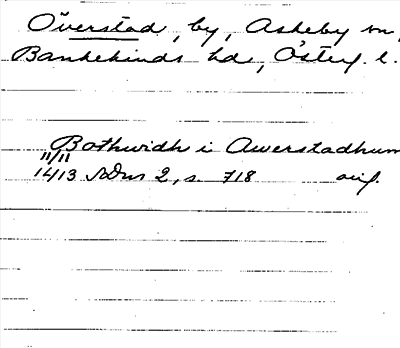 Överstad, by, Askeby sn,
Bankekinds hd, Österg. l.
Bothwidh i Awerstadhum
11/11
1413 SDns 2, s. 718 orig.